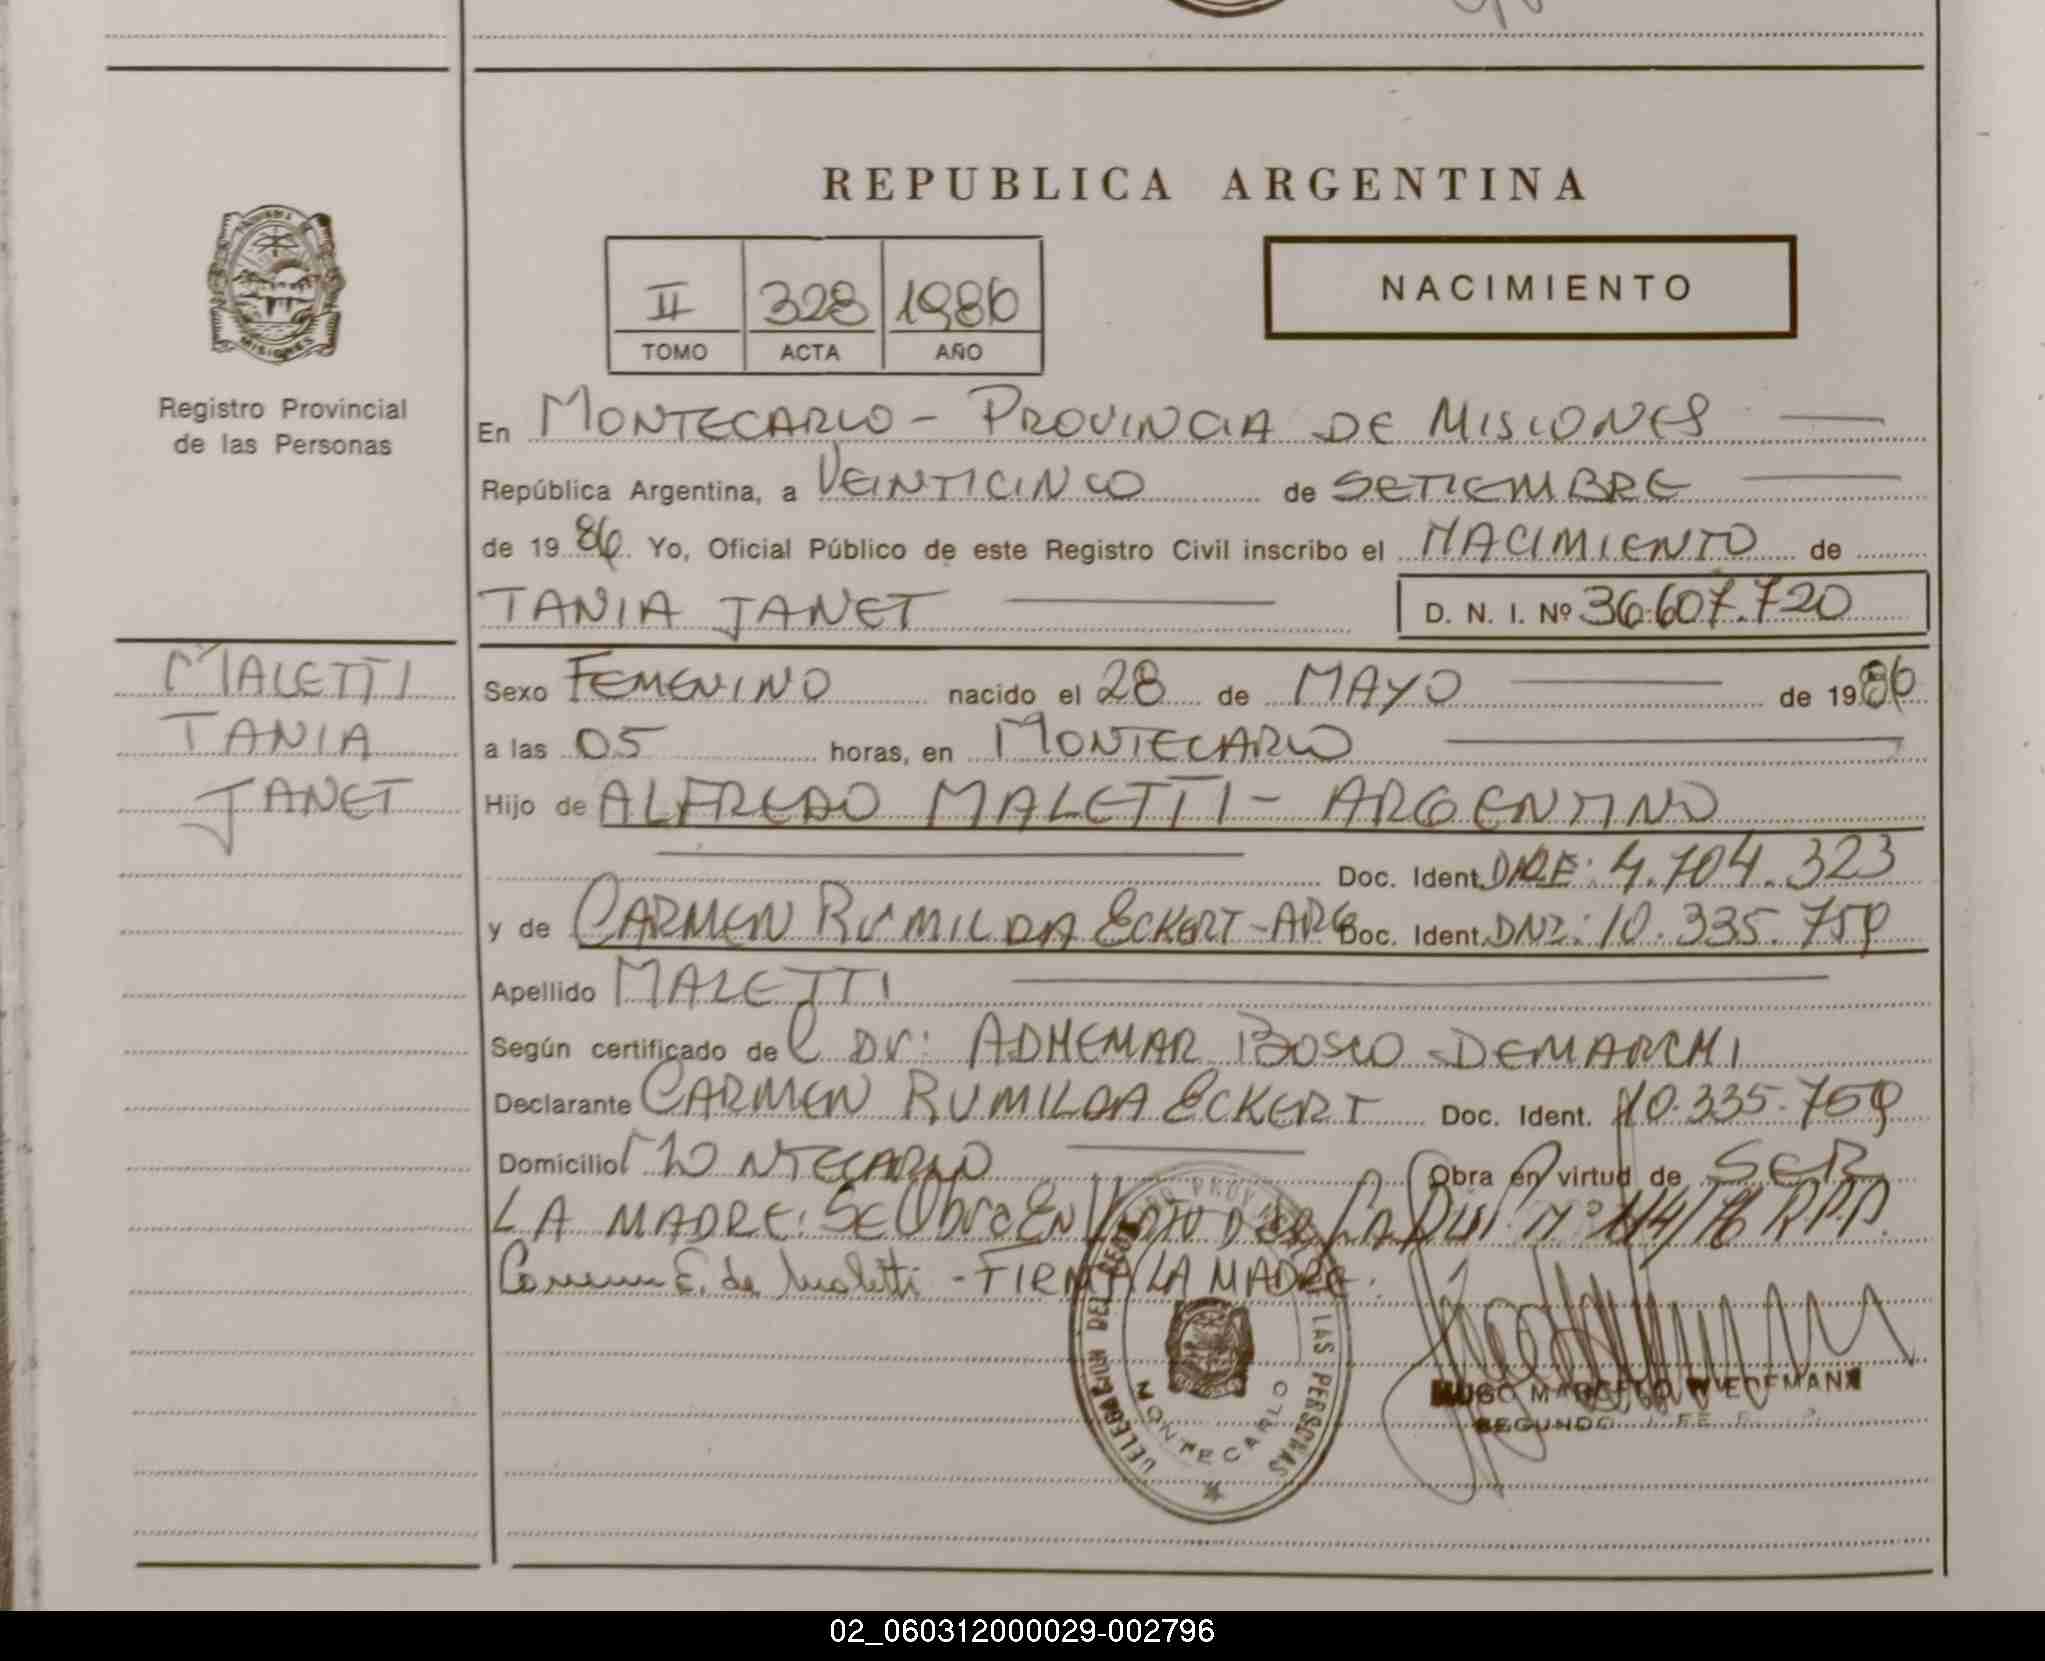 REPUBLICA ARGENTINA
MISIONES
Registro Provincial
de las Personas
II 328 1986
TOMO ACTA AÑO
NACIMIENTO
En MONTECARLO - PROVINCIA DE MISIONES
República Argentina, a VEINTICINCO de SETIEMBRE
de 1986. Yo, Oficial Público de este Registro Civil inscribo el NACIMIENTO de
TANIA JANET D. N. I. Nº 36.607.720
MALETTI
TANIA
JANET
Sexo FEMENINO nacido el 28 de MAYO de 1986
a las 05 horas, en MONTECARLO
Hijo de ALFREDO MALETTI - ARGENTINO
Doc. Ident. 4.704.323
y de CARMEN RUMILDA ECKERT - ARG Doc. Ident. DNI: 10.335.759
Apellido MALETTI
Según certificado del DR: ADHEMAR BOSCO DEMARCHI
Declarante CARMEN RUMILDA ECKERT Doc. Ident. 10.335.759
Domicilio MONTECARLO Obra en virtud de SER
LA MADRE: SE Obra EN DE LA Nº 114/76 R.P.P.
Carmen E. de Maletti - FIRMA LA MADRE.
DELEGACION DEL REGISTRO PROV. DE LAS PERSONAS
MONTECARLO
HUGO MARCELO WIEDEMANN
SEGUNDO JEFE
02_060312000029-002796